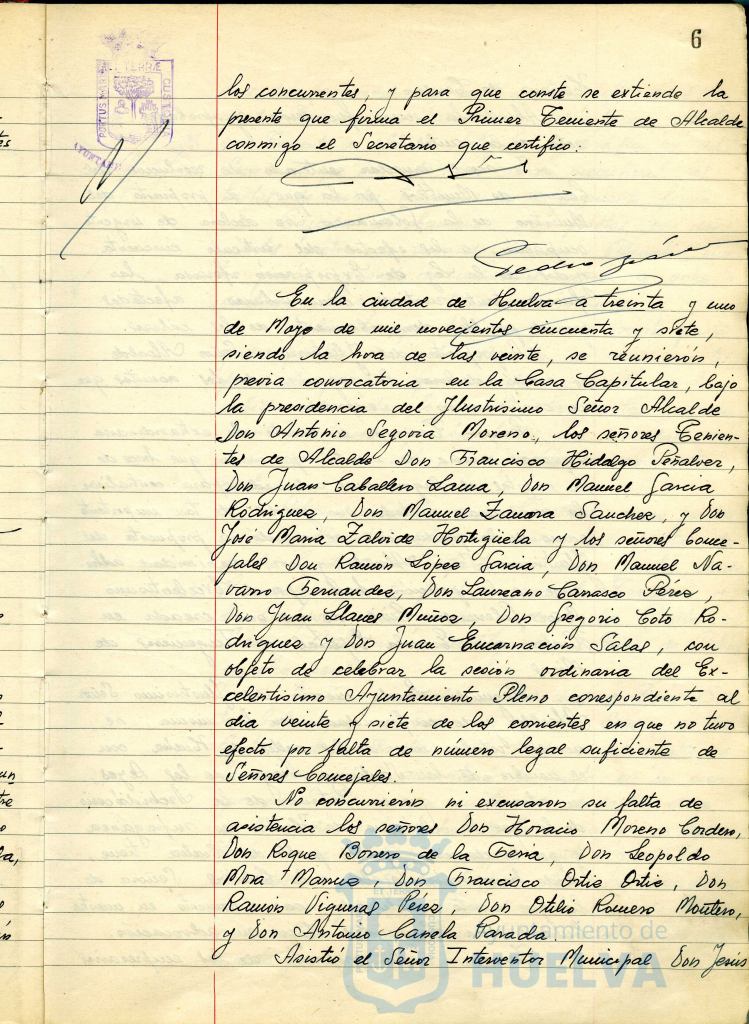 6
los concurrentes, y para que conste se extiende la
presente que firma el Primer Teniente de Alcalde
conmigo el Secretario que certifico:
Pedro
En la ciudad de Huelva a treinta y uno
de Mayo de mil novecientos cincuenta y siete,
siendo la hora de las veinte, se reunierón,
previa convocatoria en la Casa Capitular, bajo
la presidencia del Ilustrisimo Señor Alcalde
Don Antonio Segovia Moreno, los señores Tenien-
tes de Alcalde Don Francisco Hidalgo Peñalver,
Don Juan Caballero Lama, Don Manuel Garcia
Rodriguez, Don Manuel Zamora Sanchez, y Don
José Maria Zalvide Hortigüela y los señores Conce-
jales Don Ramón López Garcia, Don Manuel Na-
varro Fernandez, Don Laureano Carrasco Pérez,
Don Juan Llanes Muñoz, Don Gregorio Coto Ro-
driguez y Don Juan Encarnación Salas, con
objeto de celebrar la sesión ordinaria del Ex-
celentisimo Ayuntamiento Pleno correspondiente al
dia veinte y siete de los corrientes en que no tuvo
efecto por falta de número legal suficiente de
Señores Concejales.
No concurrierón ni excusaron su falta de
asistencia los señores Don Horacio Moreno Cordero,
Don Roque Borrero de la Feria, Don Leopoldo
Mora Marruz, Don Francisco Ortiz Ortiz, Don
Ramón Vigueras Pérez, Don Otilio Romero Montero,
y Don Antonio Canela Parada.
Asistió el Señor Interventor Municipal Don Jesús
Ayuntamiento de
HUELVA